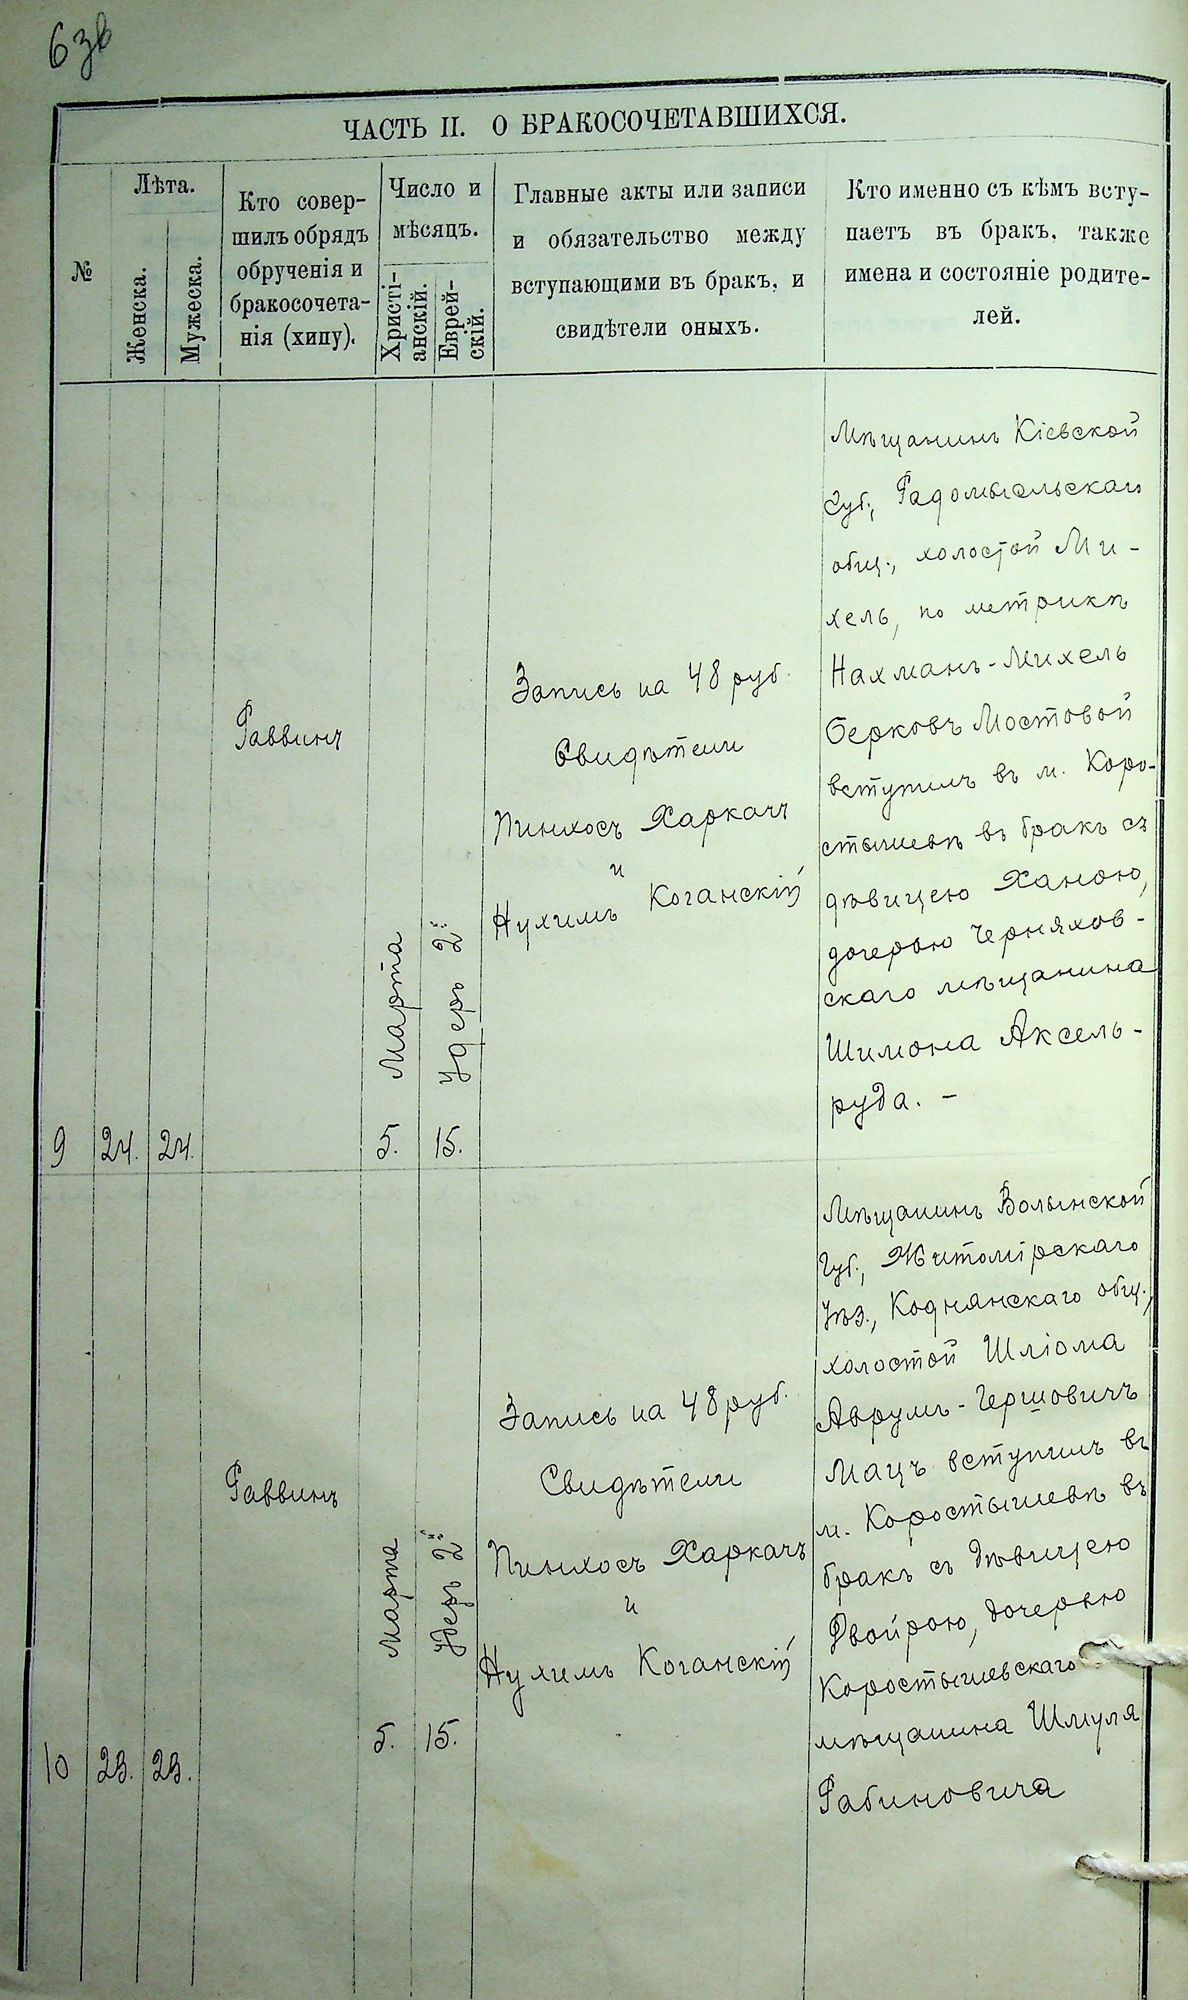 6 зв
ЧАСТЬ II. О БРАКОСОЧЕТАВШИХСЯ.
№
Лѣта.
Женска.
Мужеска.
Кто совер-
шилъ обрядъ
обрученія и
бракосочета-
нія (хипу).
Число и
мѣсяцъ.
Христі-
анскій.
Еврей-
скій.
Главные акты или записи
и обязательство между
вступающими въ бракъ, и
свидѣтели оныхъ.
Кто именно съ кѣмъ всту-
паетъ въ бракъ, также
имена и состояніе родите-
лей.
9
24.
24.
Раввинъ
5.
Марта
15.
Удеръ 2й
Запись на 48 руб.
Свидѣтели
Пинхосъ Харкачъ
и
Нухимъ Коганскій
Мѣщанинъ Кіевской
Губ., Радомысльскаго
общ., холостой Ми-
хель, по метрикѣ
Нахманъ-Михель
Берковъ Мостовой
вступилъ въ м. Коро-
стышевѣ въ бракъ съ
дѣвицею Ханою,
дочерью Черняхов-
скаго мѣщанина
Шимона Аксель-
руда. -
10
23.
23.
Раввинъ
5.
Марта
15.
Удеръ 2й
Запись на 48 руб.
Свидѣтели
Пинхосъ Харкачъ
и
Нухимъ Коганскій
Мѣщанинъ Волынской
Губ., Житомірскаго
Уѣз., Коднянскаго общ.,
холостой Шліома
Аврумъ-Гершовичъ
Мацъ вступилъ въ
м. Коростышевѣ въ
бракъ съ дѣвицею
Двойрою, дочерью
Коростышевскаго
мѣщанина Шмуля
Рабиновича